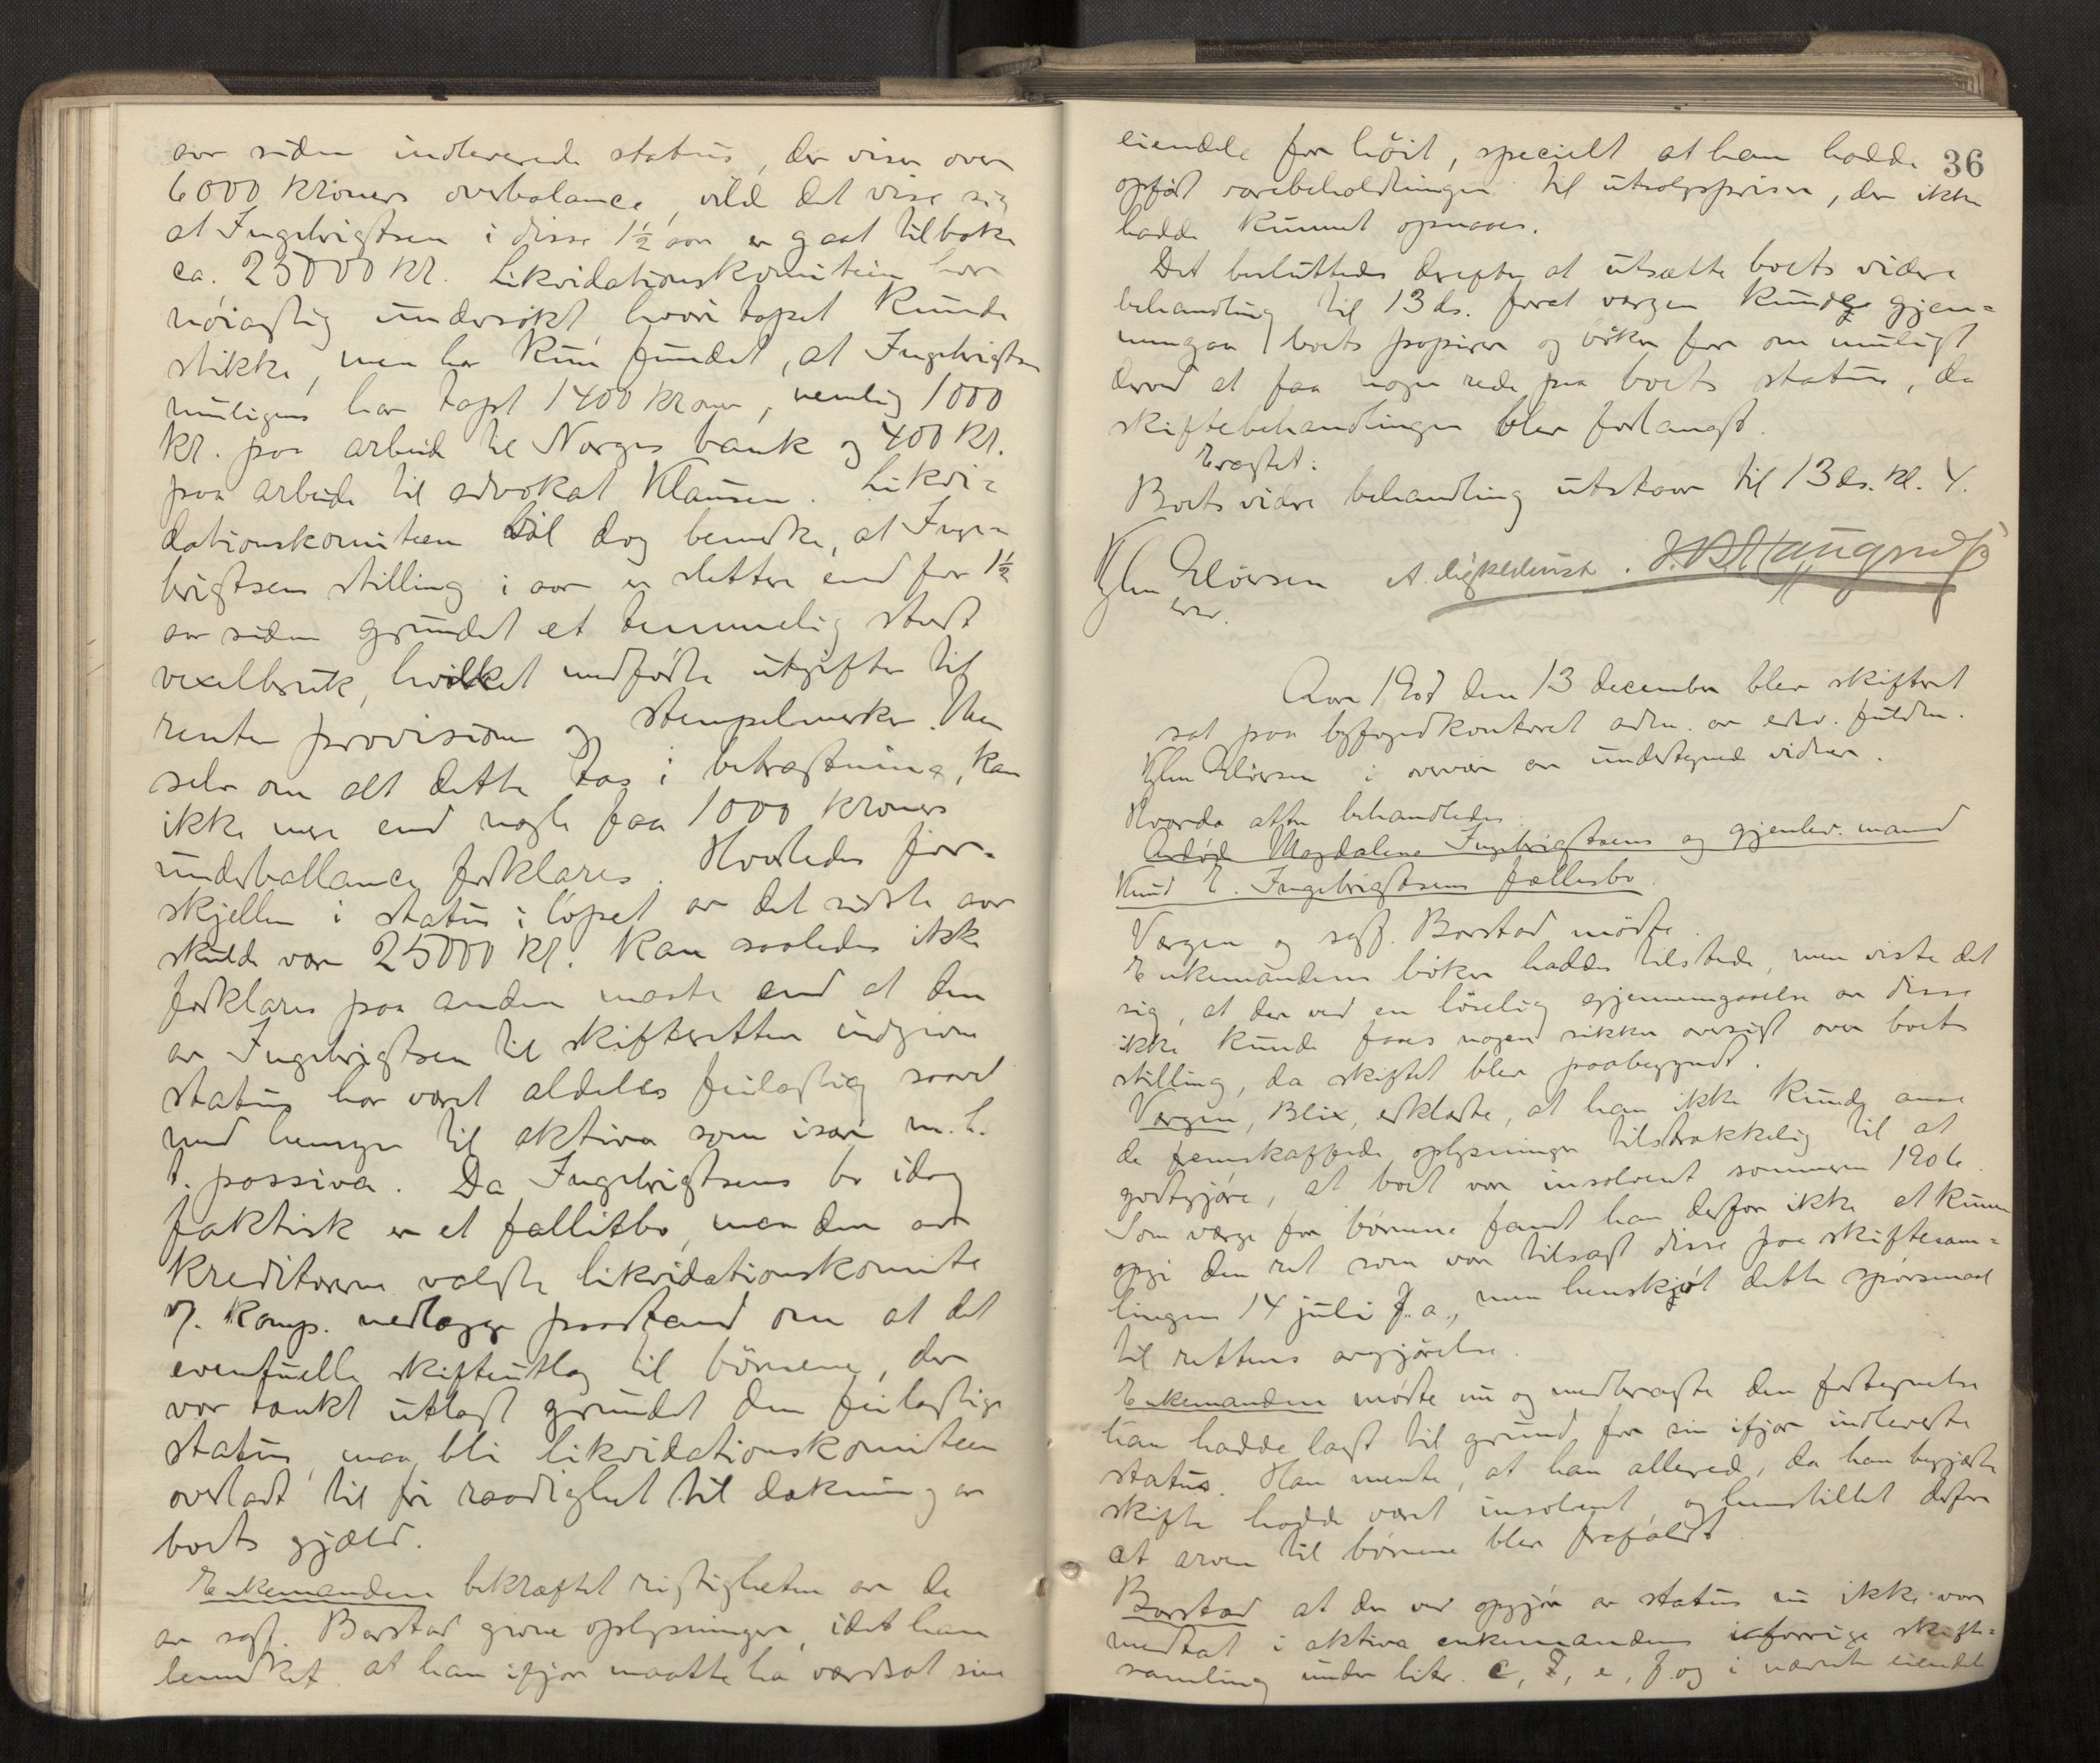 aar siden indleverede status, der viser over
6000 kroners overbalance, vild det vise sig
at Ingebrigtsen i disse 1½ aar er gaat tilbake
ca. 25000 kr. Likvidationskomiteen har
nöiagtig undersøkt hvori tapet kunde
stikke, men har kun fundet, at Ingebrigtsen
muligens har tapt 1400 kroner, nemlig 1000
kr. paa arbeide til Norges bank og 400 kr.
paa arbeide til advokat Klausen. Likvi-
dationskomiteen vil dog bemerke, at Inge-
brigtsens stilling i aar er slettere end for 1½
aar siden grundet et temmelig stort
vexelbruk, hvilket medførte utgifter til
renter provision og stempelmerker. Men
selv om alt dette tas i betragtning, kan
ikke mer end nogle faa 1000 kroners
underballance forklares. Hvorledes for-
skjellen i status i löpet av det sidste aar
skulde være 25000 kr. kan saaledes ikke
forklares paa anden maate end at den
av Ingebrigtsen til skifteretten indgivne
status har været aldeles feilagtig saavel
med hensyn til aktiva som især m. h.
t. passiva. Da Ingebrigtsens bo idag
faktisk er et fallitbo, maa den av
kreditorerne valgte likvidationskomite
v/. komp. nedlægge paastand om at det
eventuelle skifteutlæg til børnene, der
var tænkt utlagt grundet den feilagtige
status, maa bli likvidationskomiteen
overladt til fri raadighet til dækning av
boets gjæld.
Enkemanden bekræftet rigtigheten av de
av sagf. Barstad givne oplysninger, idet han
bemerket at han ifjor maatte ha værdsat sine
36
eiendele for höit, specielt at han hadde
opført varebeholdningen til utsalgspriser, der ikke
hadde kunnet opnaaes.
Det besluttedes derefter at utsætte boets videre
behandling til 13 ds. forat værgen kunde gjen-
nemgaa boets papirer og bøker for om muligt
derved at faa nogen rede paa boets status, da
skiftebehandlingen blev forlangt.
Eragtet:
Boets videre behandling utstaar til 13 ds. kl. 4.
Elövsen
Aar 1907 den 13 december blev skifteret
sat paa byfogedkontoret adm. av edsv. fuldm.
Elövsen i overvær av undertegnede vidner.
Hvorda atter behandledes:
Avdøde Magdalene Ingebrigtsens og gjenlev. mand
Knud E. Ingebrigtsens fællesbo.
Værgen og sagf. Barstad mödte.
Enkemandens bøker haddes tilstede, men viste det
sig, at der ved en löselig gjennemgaaelse av disse
ikke kunde faaes nogen sikker oversigt over boets
stilling, da skiftet blev paabegyndt.
Værgen, Blix, erklærte, at han ikke kunde anse
de fremskaffede oplysninger tilstrækkelig til at
godtgjöre, at boet var insolvent sommeren 1906.
Som værge for børnene fandt han derfor ikke at kunne
opgi den ret som var tilsagt disse paa skiftesam-
lingen 14 juli f. a., men henskjøt dette spörsmaal
til rettens avgjörelse.
Enkemanden mødte nu og medbragte den fortegnelse
han hadde lagt til grund for sin ifjor indleverte
status. Han mente, at han allerede, da han begjærte
skifte hadde været insolvent, og henstillet derfor
at arven til børnene blev frafaldt.
Barstad at der ved opgjör av status nu ikke var
medtat i aktiva enkemandens i forrige skifte-
samling under litr. c, d, e, f. og i nævnte eiendele